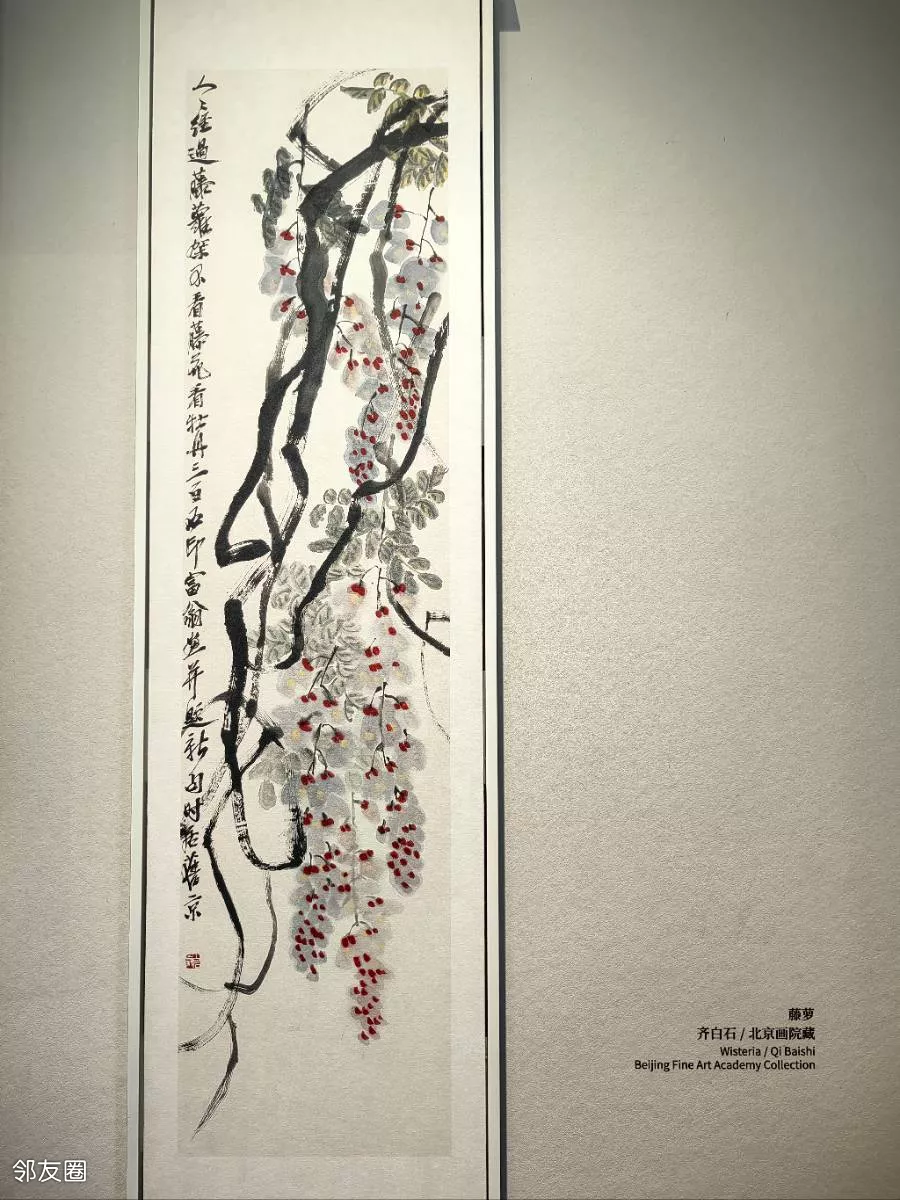 人々經過藤蘿架不看藤花看牡丹三百石印富翁並題新句時居舊京
藤萝
齐白石 / 北京画院藏
Wisteria / Qi Baishi
Beijing Fine Art Academy Collection
邻友圈